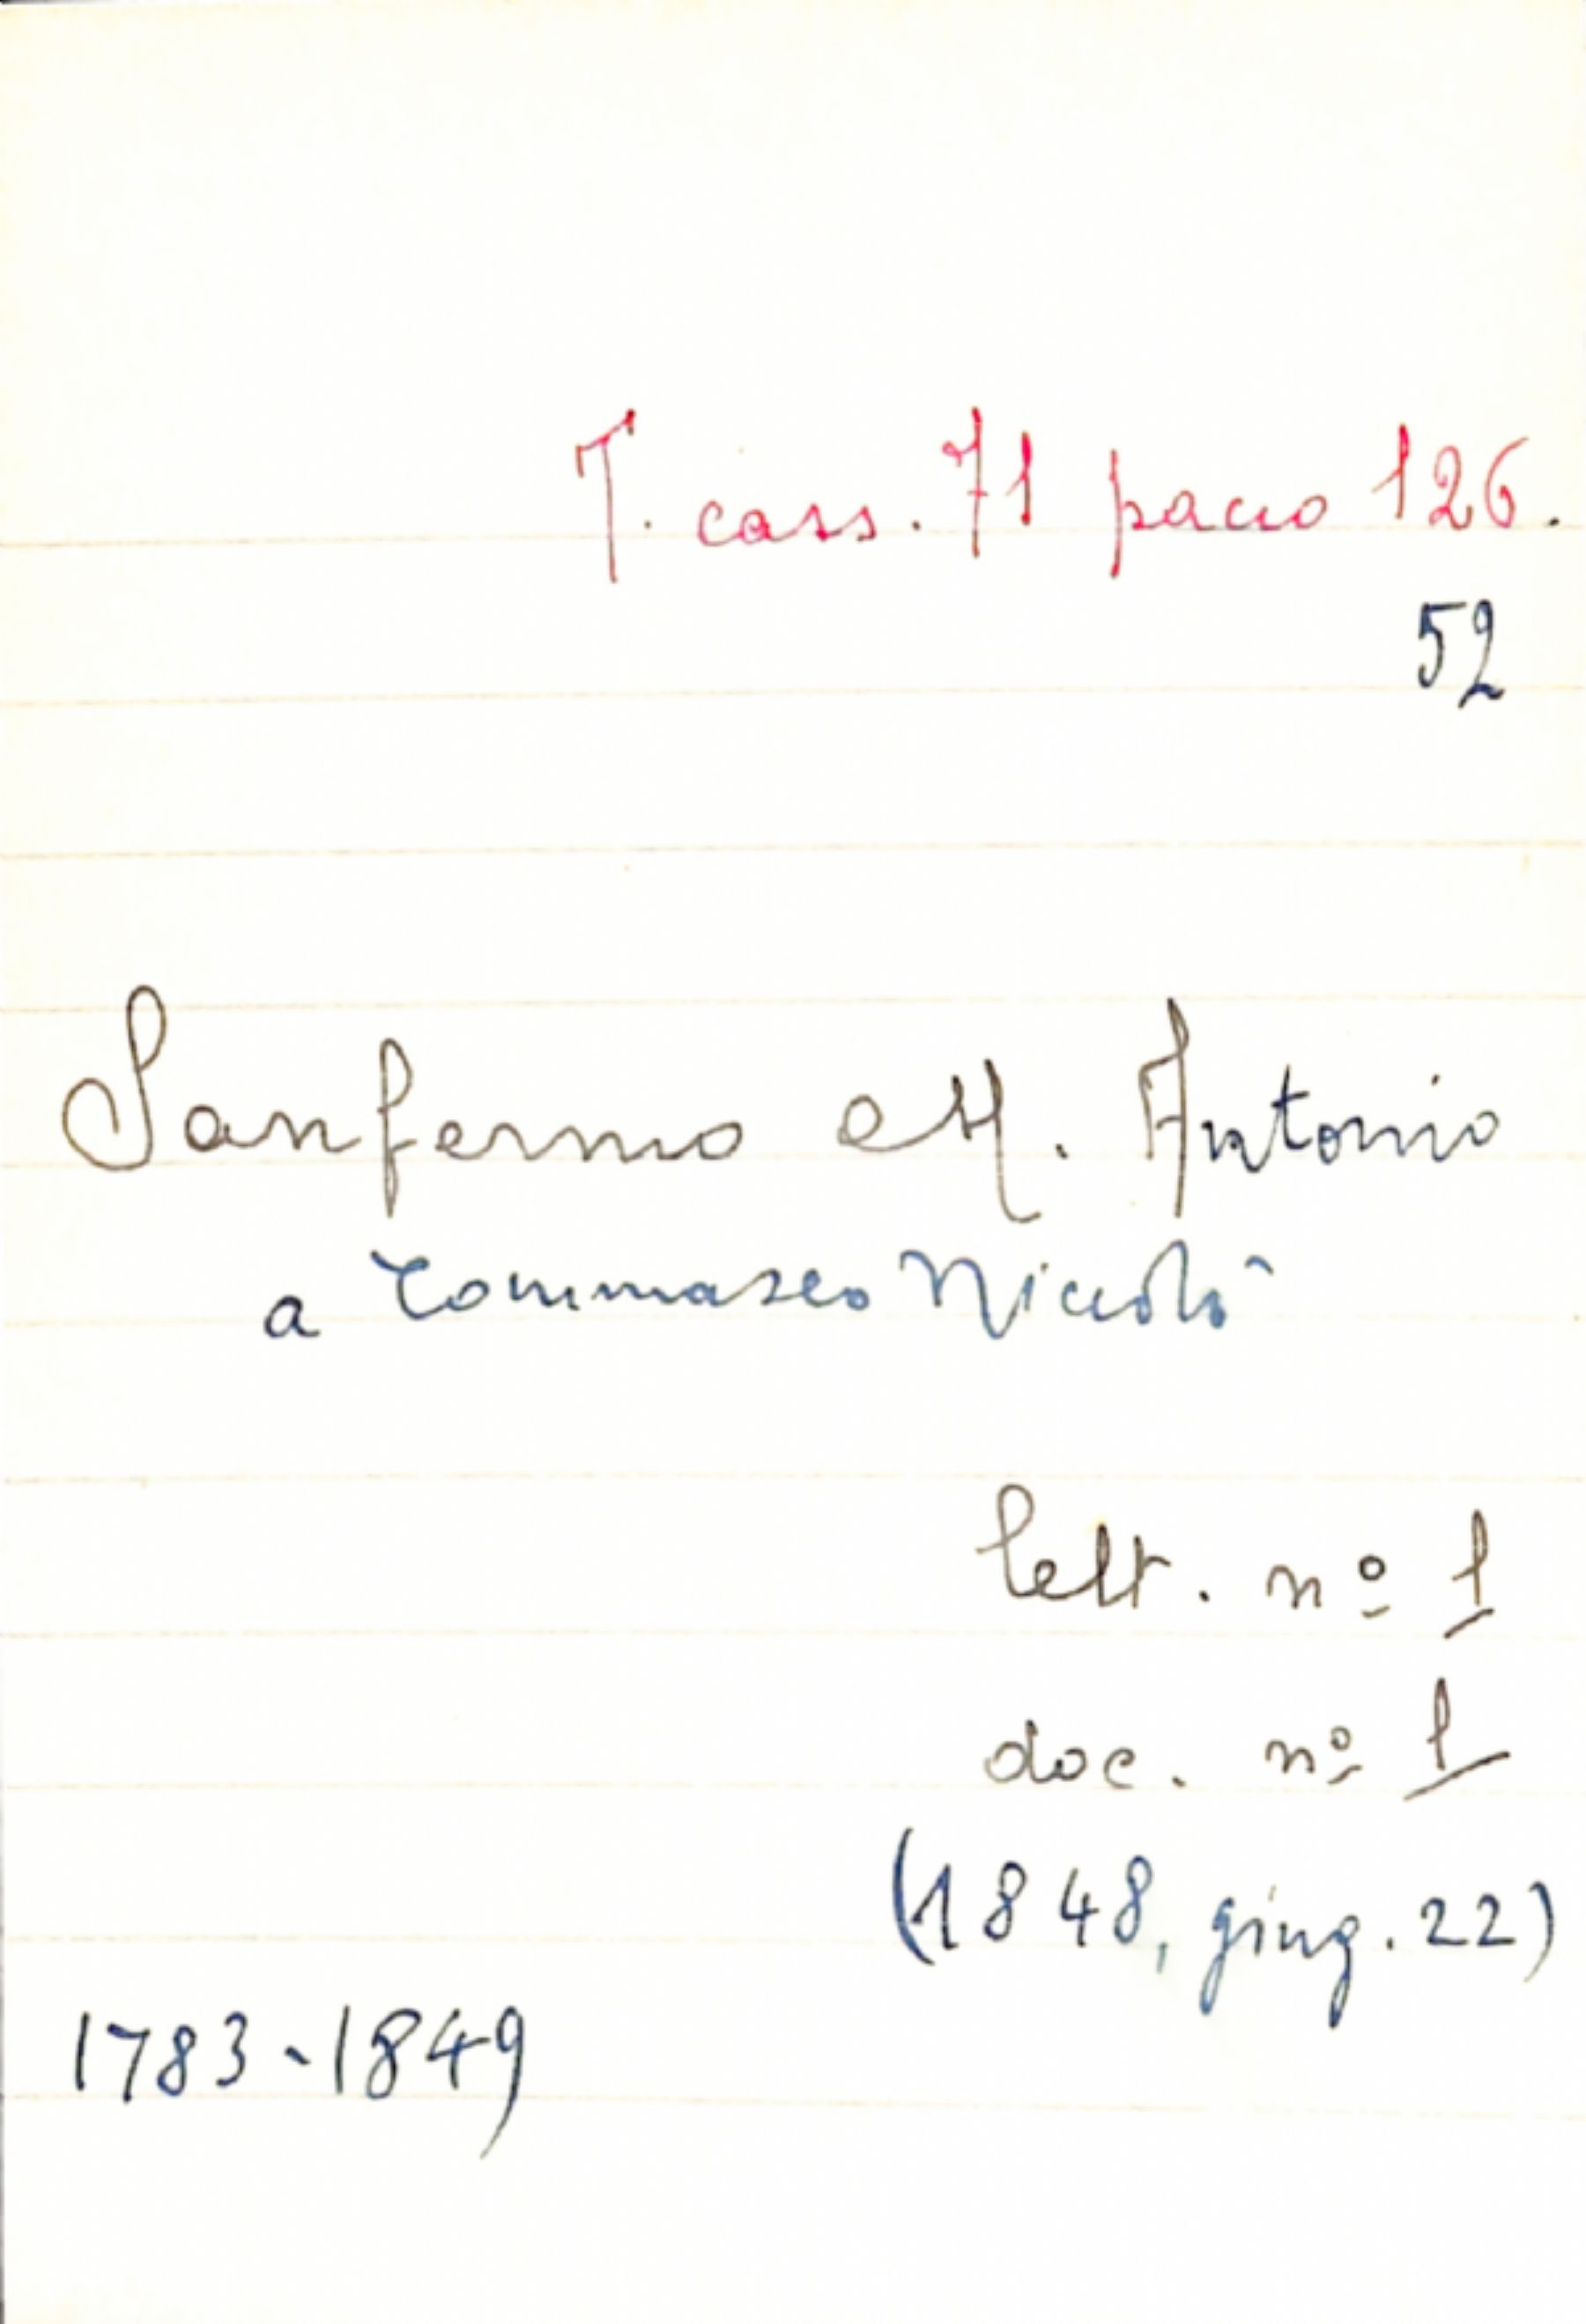 T. cass. 71 pacco 126.
52
Sanfermo M. Antonio
a Tommaseo Niccolò
lett. nº 1
doc. nº 1
(1848, giug. 22)
1783-1849